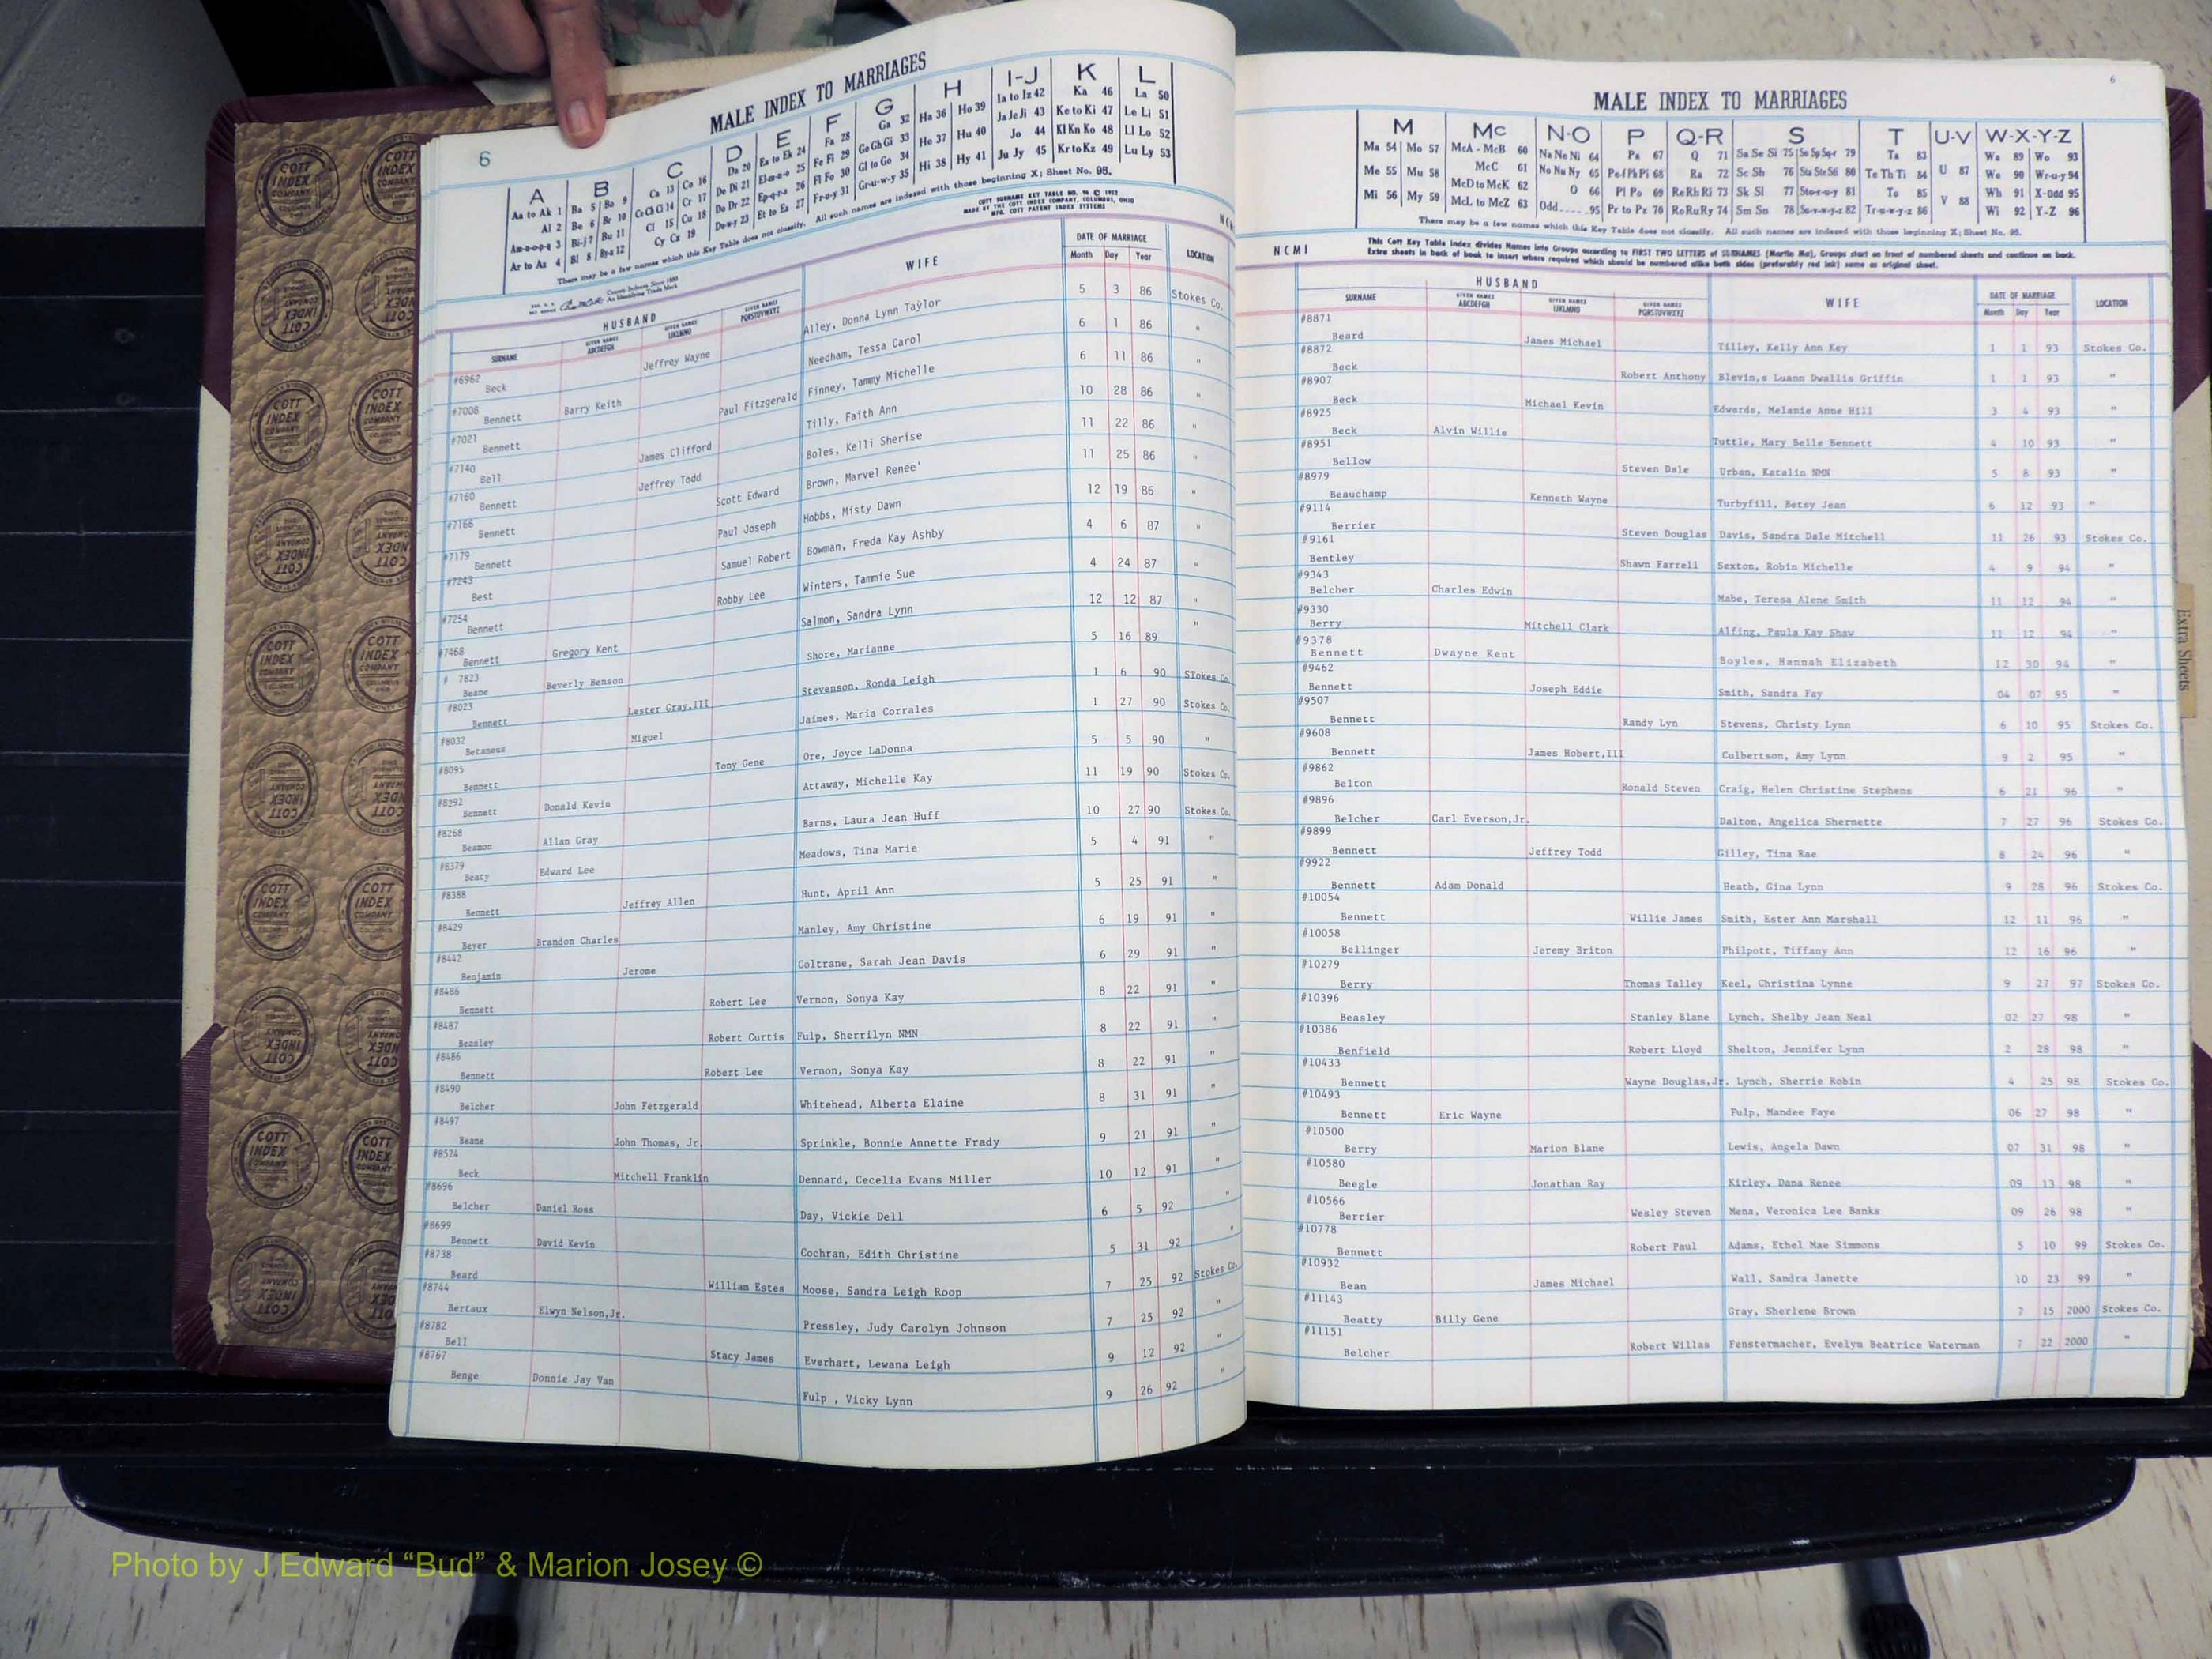 6
MALE INDEX TO MARRIAGES
A B C D E F G H I-J K L
Aa to Ak 1 Ba 5 Bo 9 Ca 13 Co 16 Da 20 Ea to Ek 24 Fa 28 Ga 32 Ha 36 Ho 39 Ia to Iz 42 Ka 46 La 50
Al 2 Be 6 Br 10 Ce Ch Ci 14 Cr 17 De Di 21 El-m-n-o 25 Fe Fi 29 Ge Gh Gi 33 He 37 Hu 40 Ja Je Ji 43 Ke to Ki 47 Le Li 51
Am-n-o-p-q 3 Bi-j 7 Bu 11 Cl 15 Cu 18 Do Dr 22 Ep-q-r-s 26 Fl Fo 30 Gl to Go 34 Hi 38 Hy 41 Jo 44 Kl Kn Ko 48 Ll Lo 52
Ar to Az 4 Bl 8 By-z 12 Cy Cz 19 Du-w-y 23 Et to Ez 27 Fr-u-y 31 Gr-u-w-y 35 Ju Jy 45 Kr to Kz 49 Lu Ly 53
There may be a few names which this Key Table does not classify. All such names are indexed with those beginning X; Sheet No. 98.
COTT SURNAME KEY TABLE NO. 96 © 1952
MADE BY THE COTT INDEX COMPANY, COLUMBUS, OHIO
MFG. COTT PATENT INDEX SYSTEMS
HUSBAND WIFE DATE OF MARRIAGE LOCATION
SURNAME GIVEN NAMES ABCDEFGH GIVEN NAMES IJKLMNO GIVEN NAMES PQRSTUVWXYZ Month Day Year
#6962 Beck Jeffrey Wayne Alley, Donna Lynn Taylor 5 3 86 Stokes Co.
#7008 Bennett Barry Keith Needham, Tessa Carol 6 1 86 "
#7021 Bennett Paul Fitzgerald Finney, Tammy Michelle 6 11 86 "
#7140 Bell James Clifford Tilly, Faith Ann 10 28 86 "
#7160 Bennett Jeffrey Todd Boles, Kelli Sherise 11 22 86 "
#7166 Bennett Scott Edward Brown, Marvel Renee' 11 25 86 "
#7179 Bennett Paul Joseph Hobbs, Misty Dawn 12 19 86 "
#7243 Best Samuel Robert Bowman, Freda Kay Ashby 4 6 87 "
#7254 Bennett Robby Lee Winters, Tammie Sue 4 24 87 "
#7468 Bennett Gregory Kent Salmon, Sandra Lynn 12 12 87 "
# 7823 Beane Beverly Benson Shore, Marianne 5 16 89 "
#8023 Bennett Lester Gray,III Stevenson, Ronda Leigh 1 6 90 STokes Co.
#8032 Betaneus Miguel Jaimes, Maria Corrales 1 27 90 Stokes Co.
#8095 Bennett Tony Gene Ore, Joyce LaDonna 5 5 90 "
#8292 Bennett Donald Kevin Attaway, Michelle Kay 11 19 90 Stokes Co.
#8268 Beamon Allan Gray Barns, Laura Jean Huff 10 27 90 Stokes Co.
#8379 Beaty Edward Lee Meadows, Tina Marie 5 4 91 "
#8388 Bennett Jeffrey Allen Hunt, April Ann 5 25 91 "
#8429 Beyer Brandon Charles Manley, Amy Christine 6 19 91 "
#8442 Benjamin Jerome Coltrane, Sarah Jean Davis 6 29 91 "
#8486 Bennett Robert Lee Vernon, Sonya Kay 8 22 91 "
#8487 Beasley Robert Curtis Fulp, Sherrilyn NMN 8 22 91 "
#8486 Bennett Robert Lee Vernon, Sonya Kay 8 22 91 "
#8490 Belcher John Fetzgerald Whitehead, Alberta Elaine 8 31 91 "
#8497 Beane John Thomas, Jr. Sprinkle, Bonnie Annette Frady 9 21 91 "
#8524 Beck Mitchell Franklin Dennard, Cecelia Evans Miller 10 12 91 "
#8696 Belcher Daniel Ross Day, Vickie Dell 6 5 92 "
#8699 Bennett David Kevin Cochran, Edith Christine 5 31 92 "
#8738 Beard William Estes Moose, Sandra Leigh Roop 7 25 92 Stokes Co.
#8744 Bertaux Elwyn Nelson,Jr. Pressley, Judy Carolyn Johnson 7 25 92 "
#8782 Bell Stacy James Everhart, Lewana Leigh 9 12 92 "
#8767 Benge Donnie Jay Van Fulp , Vicky Lynn 9 26 92 "
6
MALE INDEX TO MARRIAGES
M Mc N-O P Q-R S T U-V W-X-Y-Z
Ma 54 Mo 57 McA - McB 60 Na Ne Ni 64 Pa 67 Q 71 Sa Se Si 75 So Sp Sq-r 79 Ta 83 U 87 Wa 89 Wo 93
Me 55 Mu 58 McC 61 No Nu Ny 65 Pe-f Ph Pi 68 Ra 72 Sc Sh 76 Sta Ste Sti 80 Te Th Ti 84 V 88 We 90 Wr-u-y 94
Mi 56 My 59 McD to McK 62 O 66 Pl Po 69 Re Rh Ri 73 Sk Sl 77 Sto-r-u-y 81 To 85 Wh 91 X-Odd 95
McL to McZ 63 Odd 95 Pr to Pz 70 Ro Ru Ry 74 Sm Sn 78 Su-v-w-y-z 82 Tr-u-w-y-z 86 Wi 92 Y-Z 96
There may be a few names which this Key Table does not classify. All such names are indexed with those beginning X; Sheet No. 98.
NCMI This Cott Key Table Index divides Names into Groups according to FIRST TWO LETTERS of SURNAMES (Martin Ma), Groups start on front of numbered sheets and continue on back.
Extra sheets in back of book to insert where required which should be numbered alike both sides (preferably red ink) same as original sheet.
HUSBAND WIFE DATE OF MARRIAGE LOCATION
SURNAME GIVEN NAMES ABCDEFGH GIVEN NAMES IJKLMNO GIVEN NAMES PQRSTUVWXYZ Month Day Year
#8871 Beard James Michael Tilley, Kelly Ann Key 1 1 93 Stokes Co.
#8872 Beck Robert Anthony Blevin,s Luann Dwallis Griffin 1 1 93 "
#8907 Beck Michael Kevin Edwards, Melanie Anne Hill 3 4 93 "
#8925 Beck Alvin Willie Tuttle, Mary Belle Bennett 4 10 93 "
#8951 Bellow Steven Dale Urban, Katalin NMN 5 8 93 "
#8979 Beauchamp Kenneth Wayne Turbyfill, Betsy Jean 6 12 93 "
#9114 Berrier Steven Douglas Davis, Sandra Dale Mitchell 11 26 93 Stokes Co.
#9161 Bentley Shawn Farrell Sexton, Robin Michelle 4 9 94 "
#9343 Belcher Charles Edwin Mabe, Teresa Alene Smith 11 12 94 "
#9330 Berry Mitchell Clark Alfing, Paula Kay Shaw 11 12 94 "
#9378 Bennett Dwayne Kent Boyles, Hannah Elizabeth 12 30 94 "
#9462 Bennett Joseph Eddie Smith, Sandra Fay 04 07 95 "
#9507 Bennett Randy Lyn Stevens, Christy Lynn 6 10 95 Stokes Co.
#9608 Bennett James Hobert,III Culbertson, Amy Lynn 9 2 95 "
#9862 Belton Ronald Steven Craig, Helen Christine Stephens 6 21 96 "
#9896 Belcher Carl Everson,Jr. Dalton, Angelica Shernette 7 27 96 Stokes Co.
#9899 Bennett Jeffrey Todd Gilley, Tina Rae 8 24 96 "
#9922 Bennett Adam Donald Heath, Gina Lynn 9 28 96 Stokes Co.
#10054 Bennett Willie James Smith, Ester Ann Marshall 12 11 96 "
#10058 Bellinger Jeremy Briton Philpott, Tiffany Ann 12 16 96 "
#10279 Berry Thomas Talley Keel, Christina Lynne 9 27 97 Stokes Co.
#10396 Beasley Stanley Blane Lynch, Shelby Jean Neal 02 27 98 "
#10386 Benfield Robert Lloyd Shelton, Jennifer Lynn 2 28 98 "
#10433 Bennett Wayne Douglas,Jr. Lynch, Sherrie Robin 4 25 98 Stokes Co.
#10493 Bennett Eric Wayne Fulp, Mandee Faye 06 27 98 "
#10500 Berry Marion Blane Lewis, Angela Dawn 07 31 98 "
#10580 Beegle Jonathan Ray Kirley, Dana Renee 09 13 98 "
#10566 Berrier Wesley Steven Mena, Veronica Lee Banks 09 26 98 "
#10778 Bennett Robert Paul Adams, Ethel Mae Simmons 5 10 99 Stokes Co.
#10932 Bean James Michael Wall, Sandra Janette 10 23 99 "
#11143 Beatty Billy Gene Gray, Sherlene Brown 7 15 2000 Stokes Co.
#11151 Belcher Robert Willas Fenstermacher, Evelyn Beatrice Waterman 7 22 2000 "
Extra Sheets
COTT INDEX COMPANY
Photo by J Edward “Bud” & Marion Josey ©